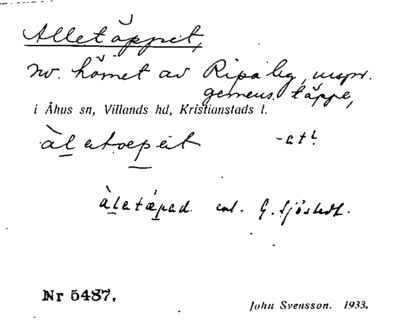 Alletäppet,
nv. hörnet av Ripa läg, urspr.
gemens. täppe,
i Åhus sn, Villands hd, Kristianstads l.
àl atœpet -at!
àlatǽpad. enl. G. Sjöstedt.
Nr 5487.
John Svensson. 1933.